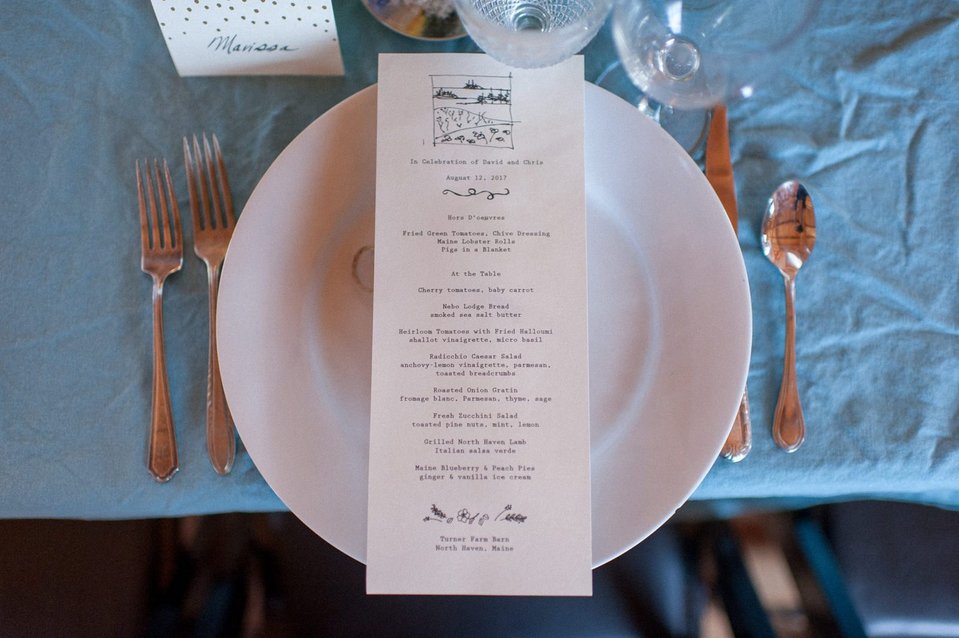 Marissa
In Celebration of David and Chris
August 12, 2017
Hors D'oeuvres
Fried Green Tomatoes, Chive Dressing
Maine Lobster Rolls
Pigs in a Blanket
At the Table
Cherry tomatoes, baby carrot
Nebo Lodge Bread
smoked sea salt butter
Heirloom Tomatoes with Fried Halloumi
shallot vinaigrette, micro basil
Radicchio Caesar Salad
anchovy-lemon vinaigrette, parmesan,
toasted breadcrumbs
Roasted Onion Gratin
fromage blanc, Parmesan, thyme, sage
Fresh Zucchini Salad
toasted pine nuts, mint, lemon
Grilled North Haven Lamb
Italian salsa verde
Maine Blueberry & Peach Pies
ginger & vanilla ice cream
Turner Farm Barn
North Haven, Maine